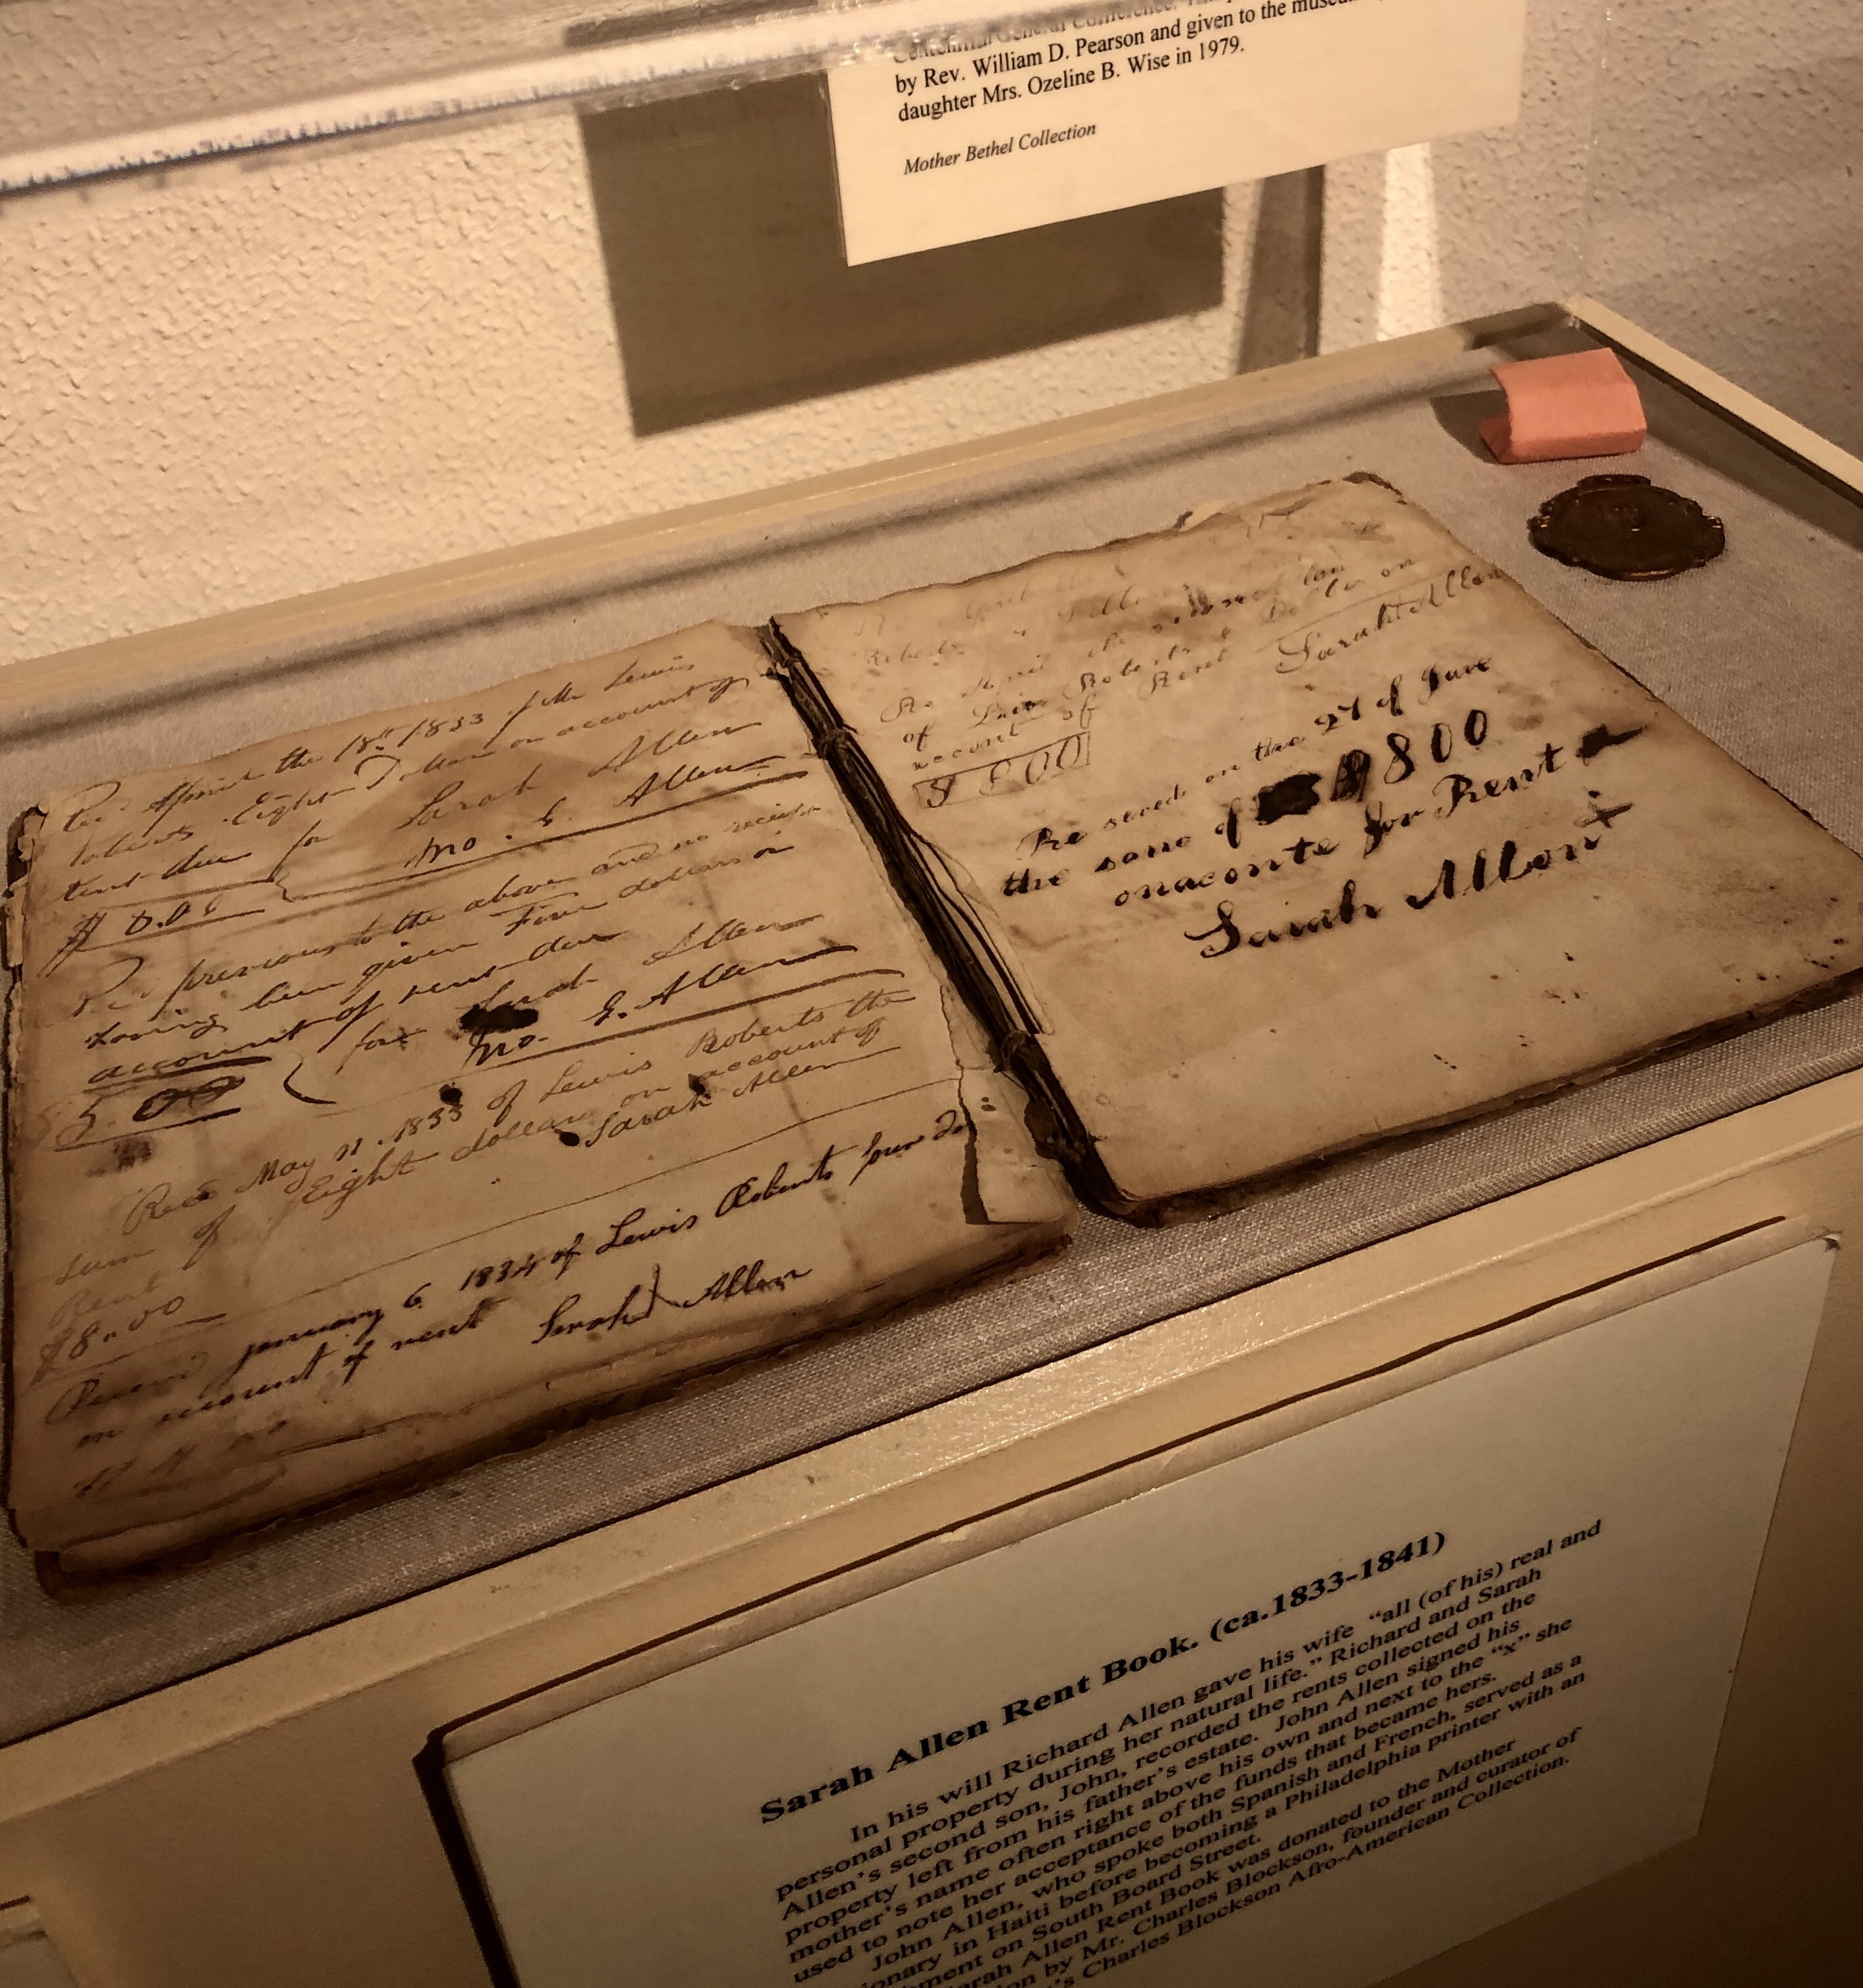 Centennial General Conference.
by Rev. William D. Pearson and given to the museum
daughter Mrs. Ozeline B. Wise in 1979.
Mother Bethel Collection
Rec' April the 18th 1833 of Mr Lewis
Roberts Eight Dollars on account of
rent due for Sarah Allen
Jno. G. Allen
$ 8.00
Rec' previous to the above and no receipt
having been given Five dollars on
account of rent due
for Sarah Allen
Jno. G. Allen
5.00
Recd May 11. 1833 of Lewis Roberts the
sum of Eight dollars on account of
Rent Sarah Allen
$8.00
Received january 6 1834 of Lewis Roberts four
on account of rent Serah Allen
April
Roberts
April
of Roberts Doller on
account of Rent Sarah Allen
$ 800
Re seved on the 27 of June
the some of $800
onaconte for Rent
Sarah Allon x
Sarah Allen Rent Book. (ca.1833-1841)
In his will Richard Allen gave his wife “all (of his) real and
personal property during her natural life.” Richard and Sarah
Allen’s second son, John, recorded the rents collected on the
property left from his father’s estate. John Allen signed his
mother’s name often right above his own and next to the “x” she
used to note her acceptance of the funds that became hers.
John Allen, who spoke both Spanish and French, served as a
ionary in Haiti before becoming a Philadelphia printer with an
ment on South Board Street.
arah Allen Rent Book was donated to the Mother
on by Mr. Charles Blockson, founder and curator of
’s Charles Blockson Afro-American Collection.